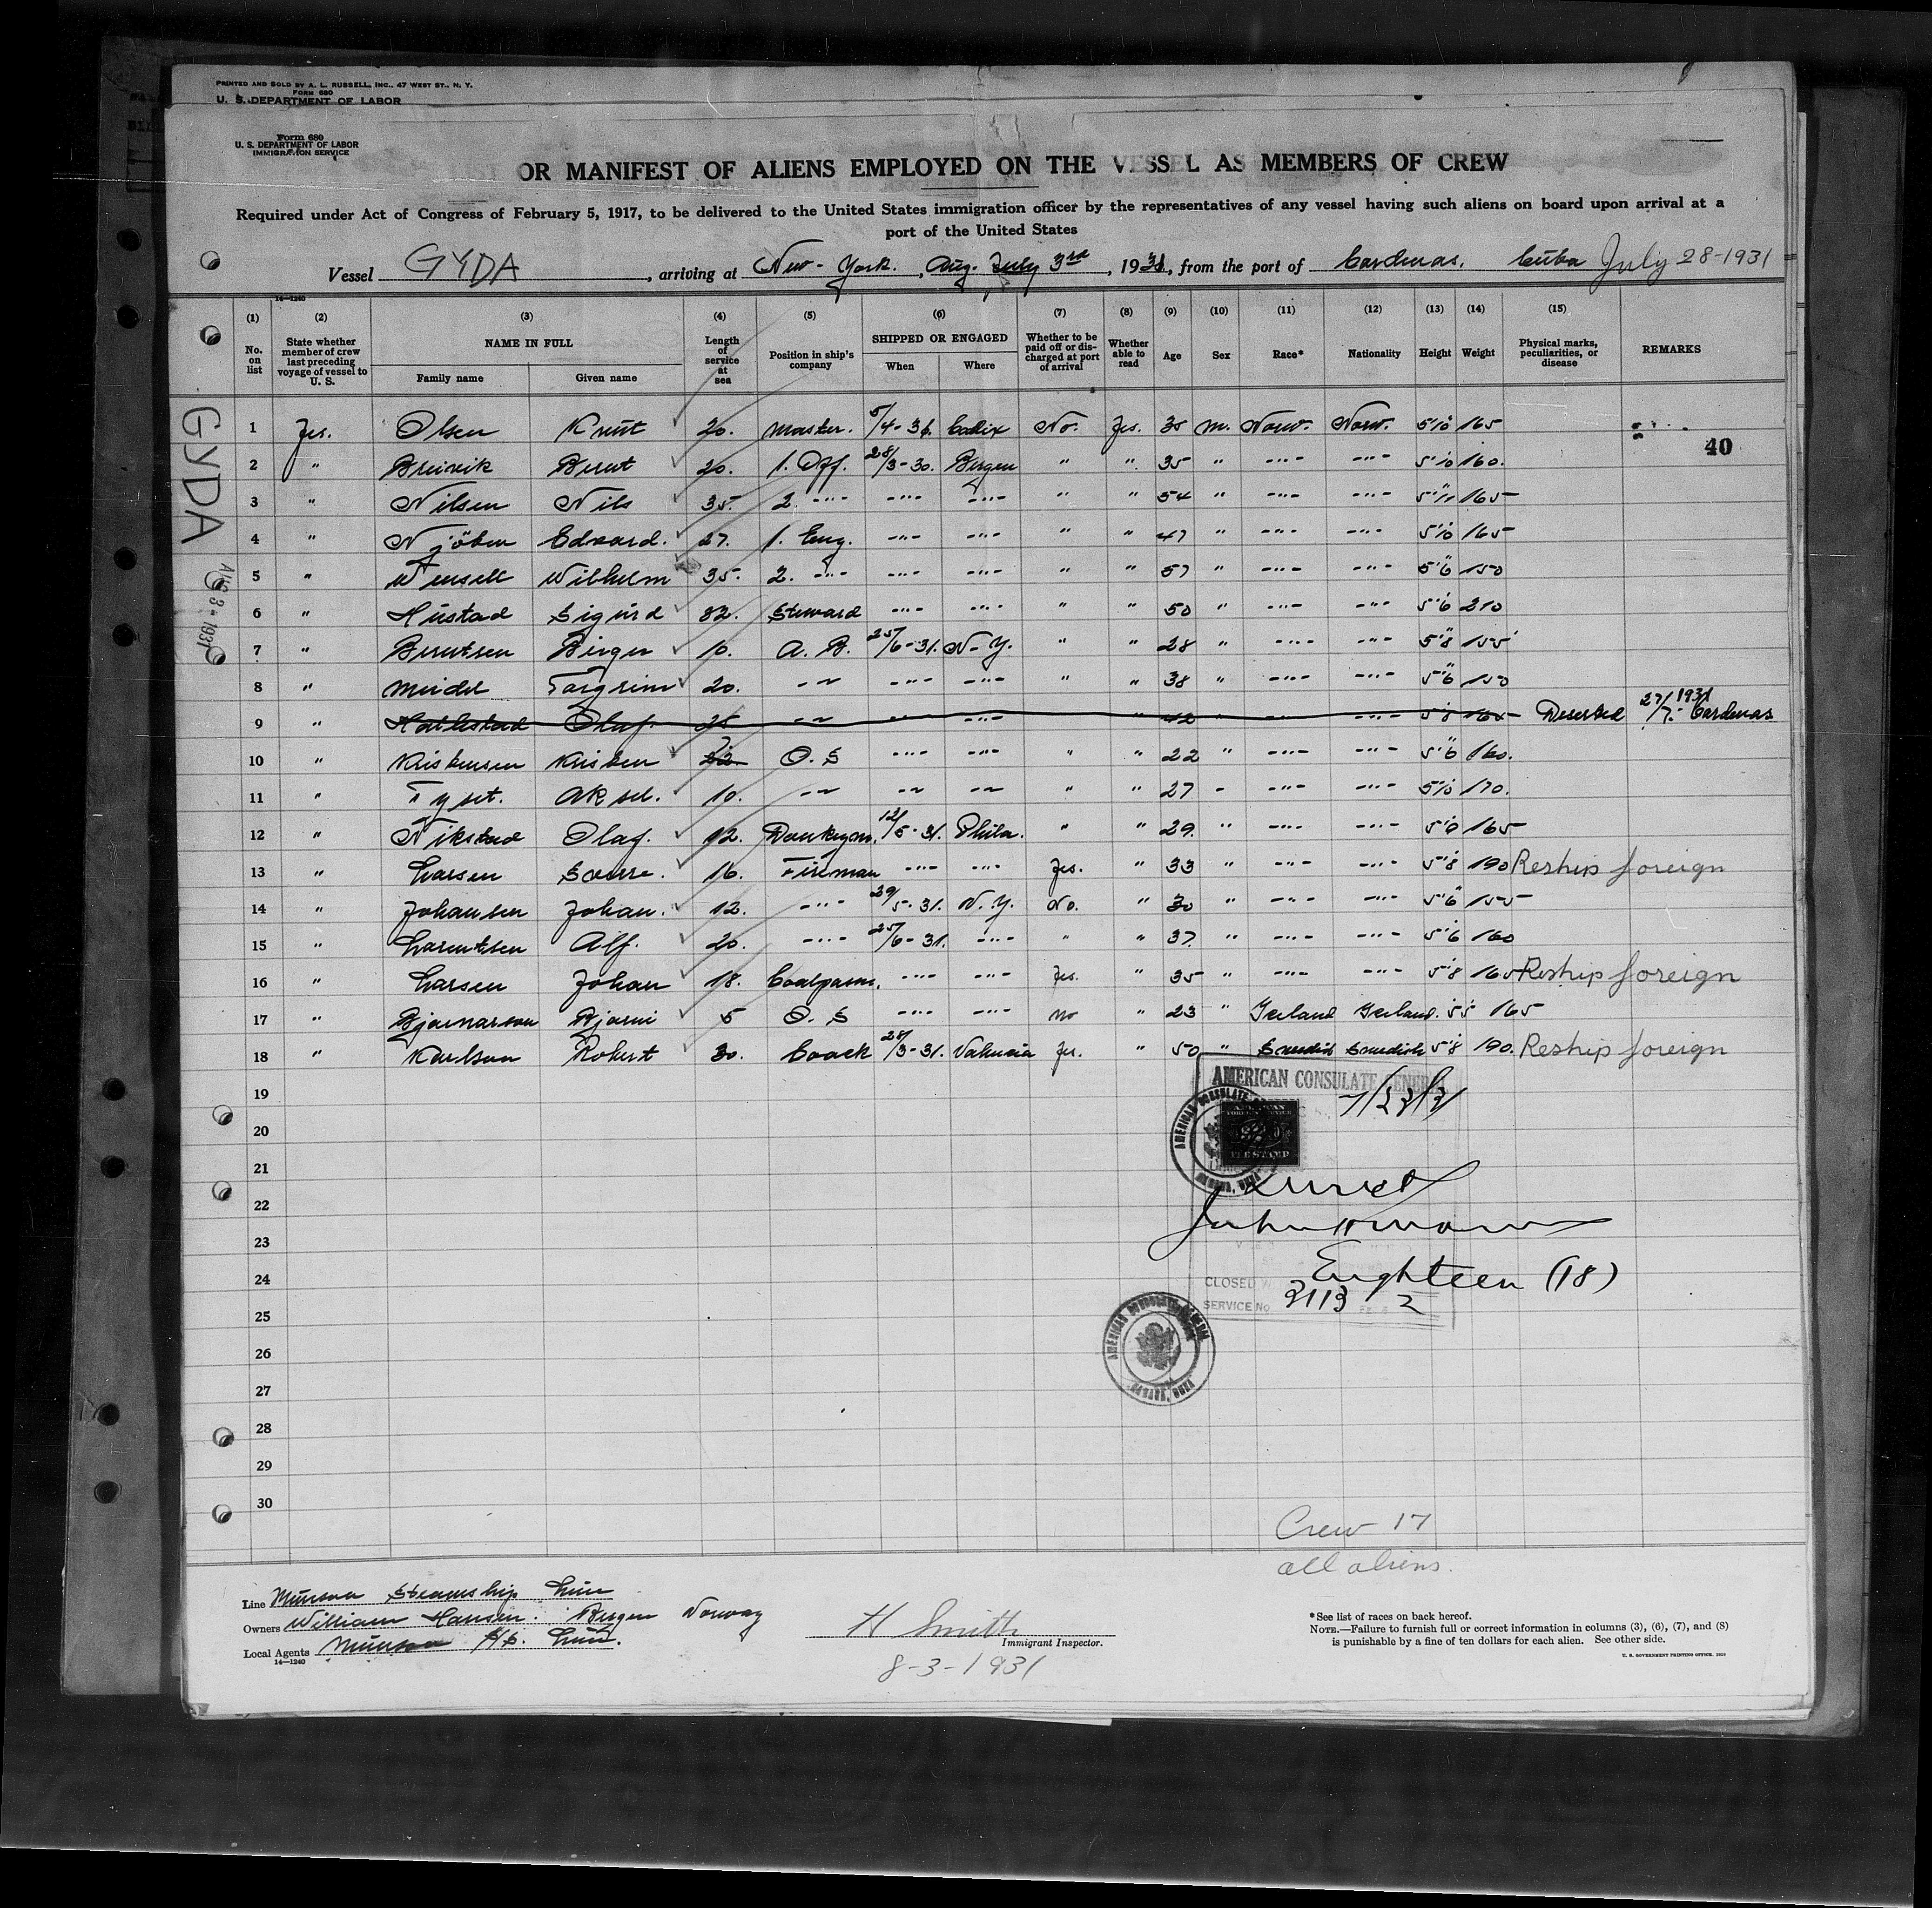 PRINTED AND SOLD BY A. L. RUSSELL, INC., 47 WEST ST., N. Y.
FORM 680
U. S. DEPARTMENT OF LABOR
Form 680
U. S. DEPARTMENT OF LABOR
IMMIGRATION SERVICE
OR MANIFEST OF ALIENS EMPLOYED ON THE VESSEL AS MEMBERS OF CREW
Required under Act of Congress of February 5, 1917, to be delivered to the United States immigration officer by the representatives of any vessel having such aliens on board upon arrival at a
port of the United States
Vessel GYDA, arriving at New-York., Aug. July 3rd, 1931, from the port of Cardenas, Cuba July 28-1931
14—1240
(1) (2) (3) (4) (5) (6) (7) (8) (9) (10) (11) (12) (13) (14) (15)
No. on list State whether member of crew last preceding voyage of vessel to U. S. NAME IN FULL Length of service at sea Position in ship's company SHIPPED OR ENGAGED Whether to be paid off or discharged at port of arrival Whether able to read Age Sex Race* Nationality Height Weight Physical marks, peculiarities, or disease REMARKS
Family name Given name When Where
GYDA
AUG 3 - 1931
1 Yes. Olsen Knut 20. Master. 5/4-31. Cadix No. Yes. 35 M. Norw. Norw. 5'10 165
40
2 " Breivik Bernt 20. 1. Off. 28/3-30. Bergen " " 35 " -"- -"- 5'10 160.
3 " Nilsen Nils 35. 2. -"- -"- -"- " " 54 " -"- -"- 5'11 165
4 " Njöten Edvard. 27. 1. Eng. -"- -"- " " 47 " -"- -"- 5'10 165
5 " Wilhelm 35. 2. -"- -"- -"- " " 57 " -"- -"- 5'6 150
6 " Hustad Sigurd 32. Steward -"- -"- " " 50 " -"- -"- 5'6 210
7 " Berntsen Birger 10. A. B. 25/6-31. N-Y. " " 28 " -"- -"- 5'8 155
8 " Meidel Torgrim 20. -"- -"- -"- " " 38 " -"- -"- 5'6 150
9 " Hatlestad Olaf. 25 -"- -"- -"- " 42 " -"- -"- 5'8 165 Deserted 27/7-1931 Cardenas
10 " Kristensen Kristen O. S -"- -"- " " 22 " -"- -"- 5'6 160.
11 " Tyset. Aksel. 10. -"- -"- -"- " " 27 - -"- -"- 5'10 170.
12 " Nikstad Olaf. 12. Donkeym. 12/5-31. Phila. " " 29. " -"- -"- 5'9 165
13 " Larsen Sverre. 16. Fireman -"- -"- Yes. " 33 " -"- -"- 5'8 190 Reship foreign
14 " Johansen Johan. 12. -"- 29/5-31. N.Y. No. " 30 " -"- -"- 5'6 155
15 " Larentsen Alf. 20. -"- 25/6-31. -"- " " 37. " -"- -"- 5'6 160
16 " Larsen Johan 18. Coalpassr. -"- -"- Yes. " 35 " -"- -"- 5'8 165 Reship foreign
17 " Bjarnarson Bjarni 5 O. S -"- -"- no " 23 " Iceland Iceland. 5'5 165
18 " Karlson Robert 30. Coock 28/3-31. Valencia Yes. " 50 " Swedish Swedish 5'8 190. Reship foreign
19
20
21
22
23
24
25
26
27
28
29
30
AMERICAN CONSULATE GENERAL
AMERICAN
FOREIGN SERVICE
FEE STAMP
CLOSED
Eighteen (18)
SERVICE No 3113 2
AMERICAN CONSULATE GENERAL
HAVANA, CUBA
Crew 17
all aliens.
Line Munson Steamship Line
Owners William Hansen. Bergen Norway
Local Agents Munson S/S. Line.
14—1240
H Smith
Immigrant Inspector.
8-3-1931
*See list of races on back hereof.
NOTE.—Failure to furnish full or correct information in columns (3), (6), (7), and (8)
is punishable by a fine of ten dollars for each alien. See other side.